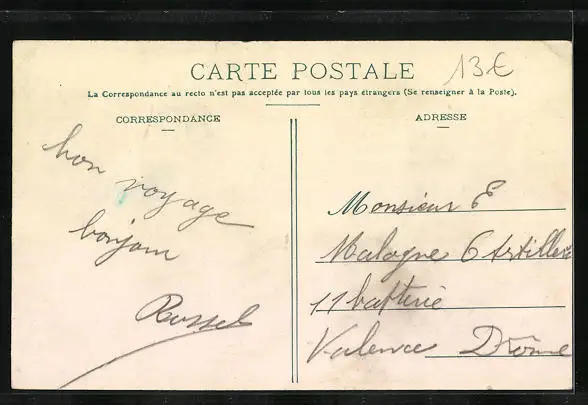 CARTE POSTALE
13€
La Correspondance au recto n'est pas acceptée par tous les pays étrangers (Se renseigner à la Poste).
CORRESPONDANCE
ADRESSE
bon voyage
bonjour
Monsieur E
Malogne 6 Artillerie
11 batterie
Valence Drôme